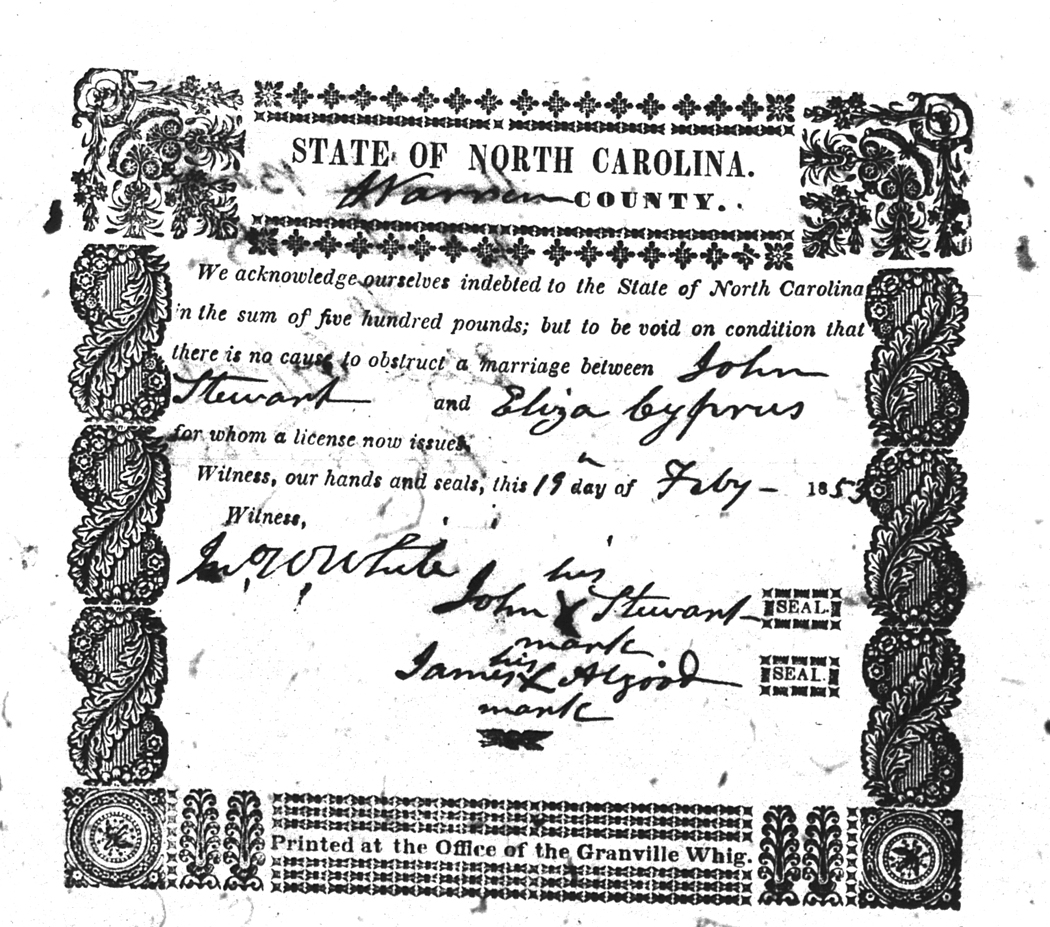 STATE OF NORTH CAROLINA.
Warren COUNTY.
We acknowledge ourselves indebted to the State of North Carolina
in the sum of five hundred pounds; but to be void on condition that
there is no cause to obstruct a marriage between John
Stewart and Eliza Cyprus
for whom a license now issues.
Witness, our hands and seals, this 19 day of Feby 1853
Witness,
Jno W White
his
John X Stewart SEAL.
mark
his
James X Algood SEAL.
mark
Printed at the Office of the Granville Whig.